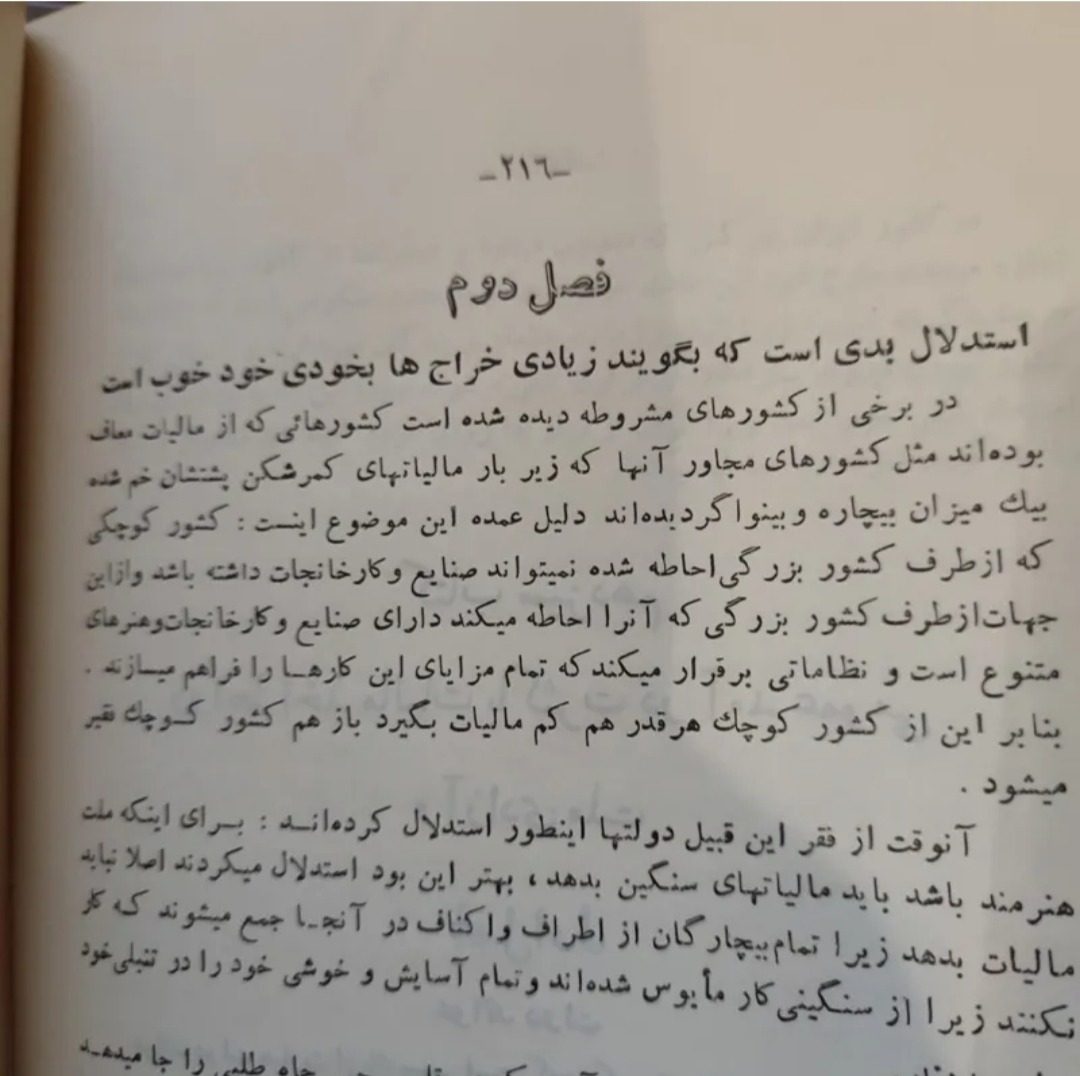 -۲۱۶-
فصل دوم
استدلال بدی است که بگویند زیادی خراج ها بخودی خود خوب است
در برخی از کشورهای مشروطه دیده شده است کشورهائی که از مالیات معاف
بوده‌اند مثل کشورهای مجاور آنها که زیر بار مالیاتهای کمرشکن پشتشان خم شده
بیك میزان بیچاره و بینوا گردیده‌اند دلیل عمده این موضوع اینست : کشور کوچکی
که از طرف کشور بزرگی احاطه شده نمیتواند صنایع و کارخانجات داشته باشد و از این
جهات از طرف کشور بزرگی که آنرا احاطه میکند دارای صنایع و کارخانجات و هنرهای
متنوع است و نظاماتی برقرار میکند که تمام مزایای این کارها را فراهم میسازند .
بنابر این از کشور کوچك هر قدر هم کم مالیات بگیرد باز هم کشور کوچك فقیر
میشود .
آنوقت از فقر این قبیل دولتها اینطور استدلال کرده‌اند : برای اینکه ملت
هنرمند باشد باید مالیاتهای سنگین بدهد ، بهتر این بود استدلال میکردند اصلا نباید
مالیات بدهد زیرا تمام بیچارگان از اطراف و اکناف در آنجا جمع میشوند که کار
نکنند زیرا از سنگینی کار مأیوس شده‌اند و تمام آسایش و خوشی خود را در تنبلی خود
جاه طلبی را جا میدهد